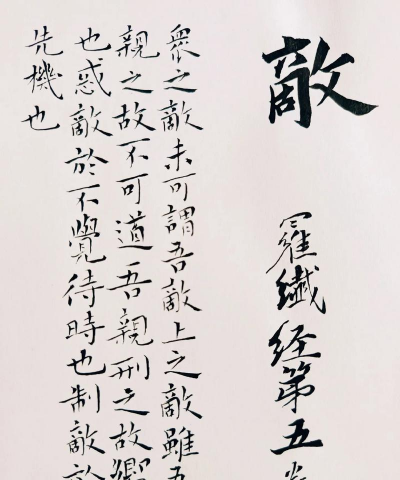 敵
羅織经第五
衆之敵未可謂吾敵上之敵雖
親之故不可道吾親刑之故
也惑敵於不覺待時也制敵於
先機也